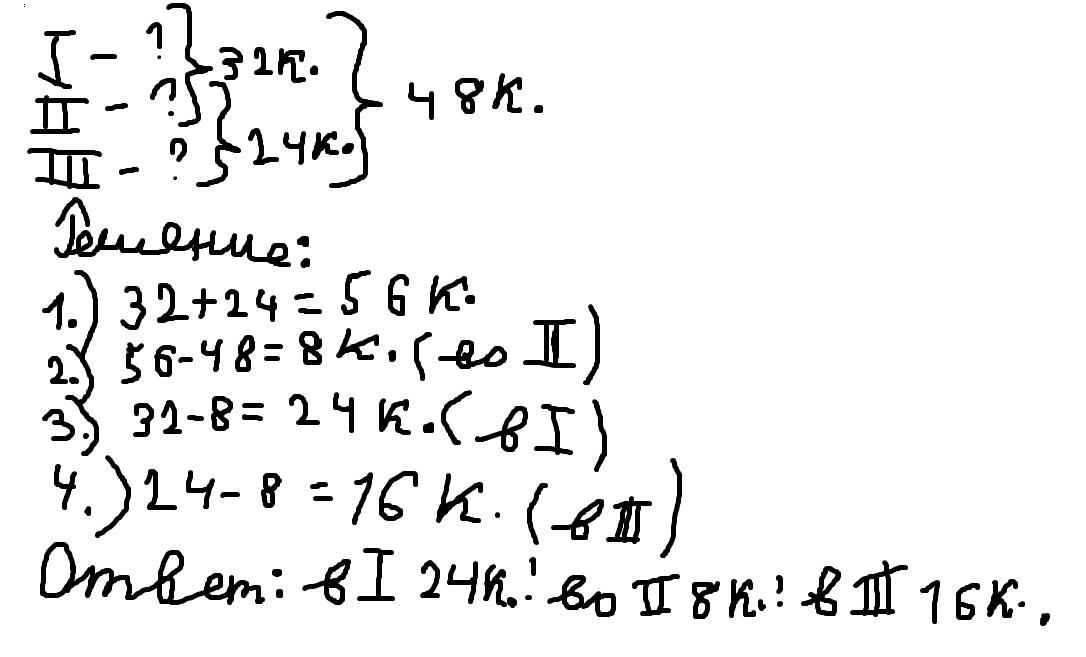 I - ? } 32к. } 48к.
II - ? } 24к.
III - ?
Решение:
1.) 32+24=56 к.
2.) 56-48=8к. (во II)
3.) 32-8=24к. (в I)
4.) 24-8=16 к. (в III)
Ответ: в I 24к.; во II 8к.; в III 16к.